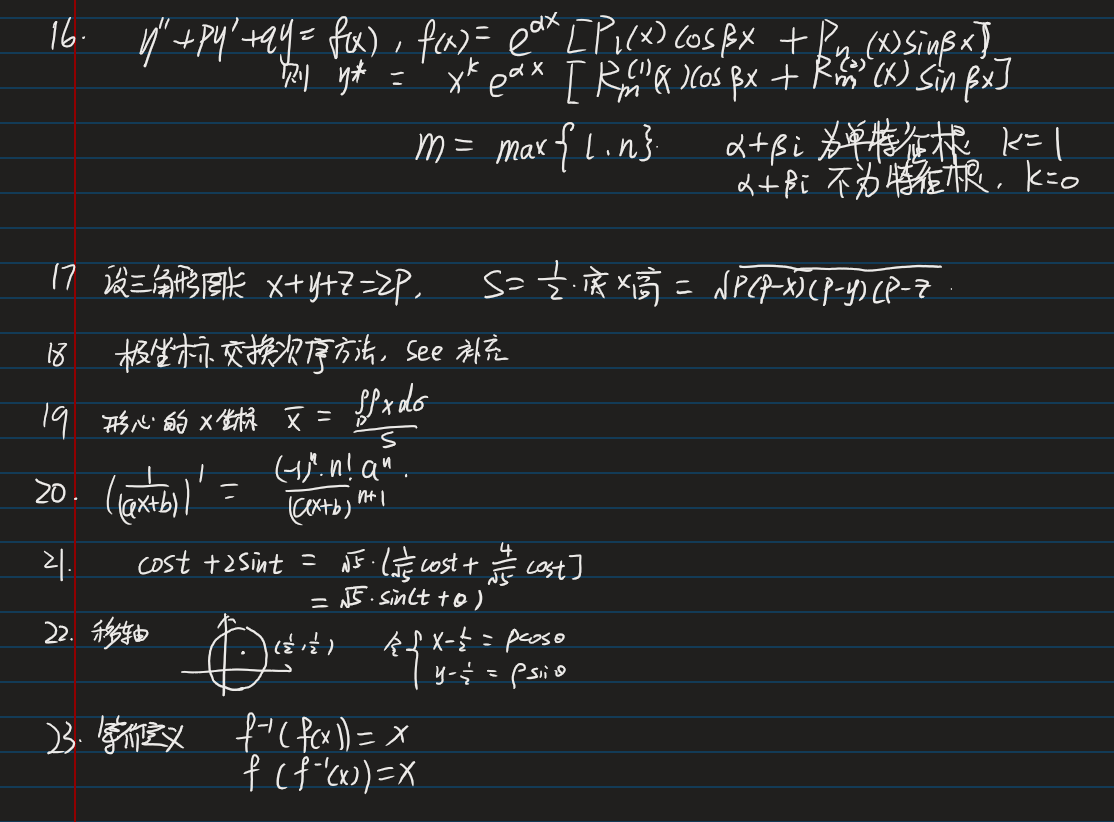 16. y''+py'+qy=f(x), f(x)=e^{αx}[P_l(x)cosβx + P_n(x)sinβx]
则 y* = x^k e^{αx} [R_m^{(1)}(x)cosβx + R_m^{(2)}(x)sinβx]
m = max{l.n}. α+βi 为单特征根, k=1
α+βi 不为特征根, k=0
17 设三角形周长 x+y+z=2P, S=\frac{1}{2}·底×高=√P(P-x)(P-y)(P-z
18 极坐标交换次序方法, see 补充
19 形心的x坐标 \bar{x} = \frac{∬_D x dσ}{S}
20. (\frac{1}{(ax+b)})' = \frac{(-1)^n·n! a^n}{(ax+b)^{n+1}}.
21. cost+2sint = √5·[\frac{1}{√5}cost+\frac{4}{√5}cost]
= √5·sin(t+θ)
22. 移轴 (\frac{1}{2},\frac{1}{2}) 令{ x-\frac{1}{2}=ρcosθ
y-\frac{1}{2}=ρsinθ
23. 等价定义 f^{-1}(f(x))=x
f(f^{-1}(x))=x